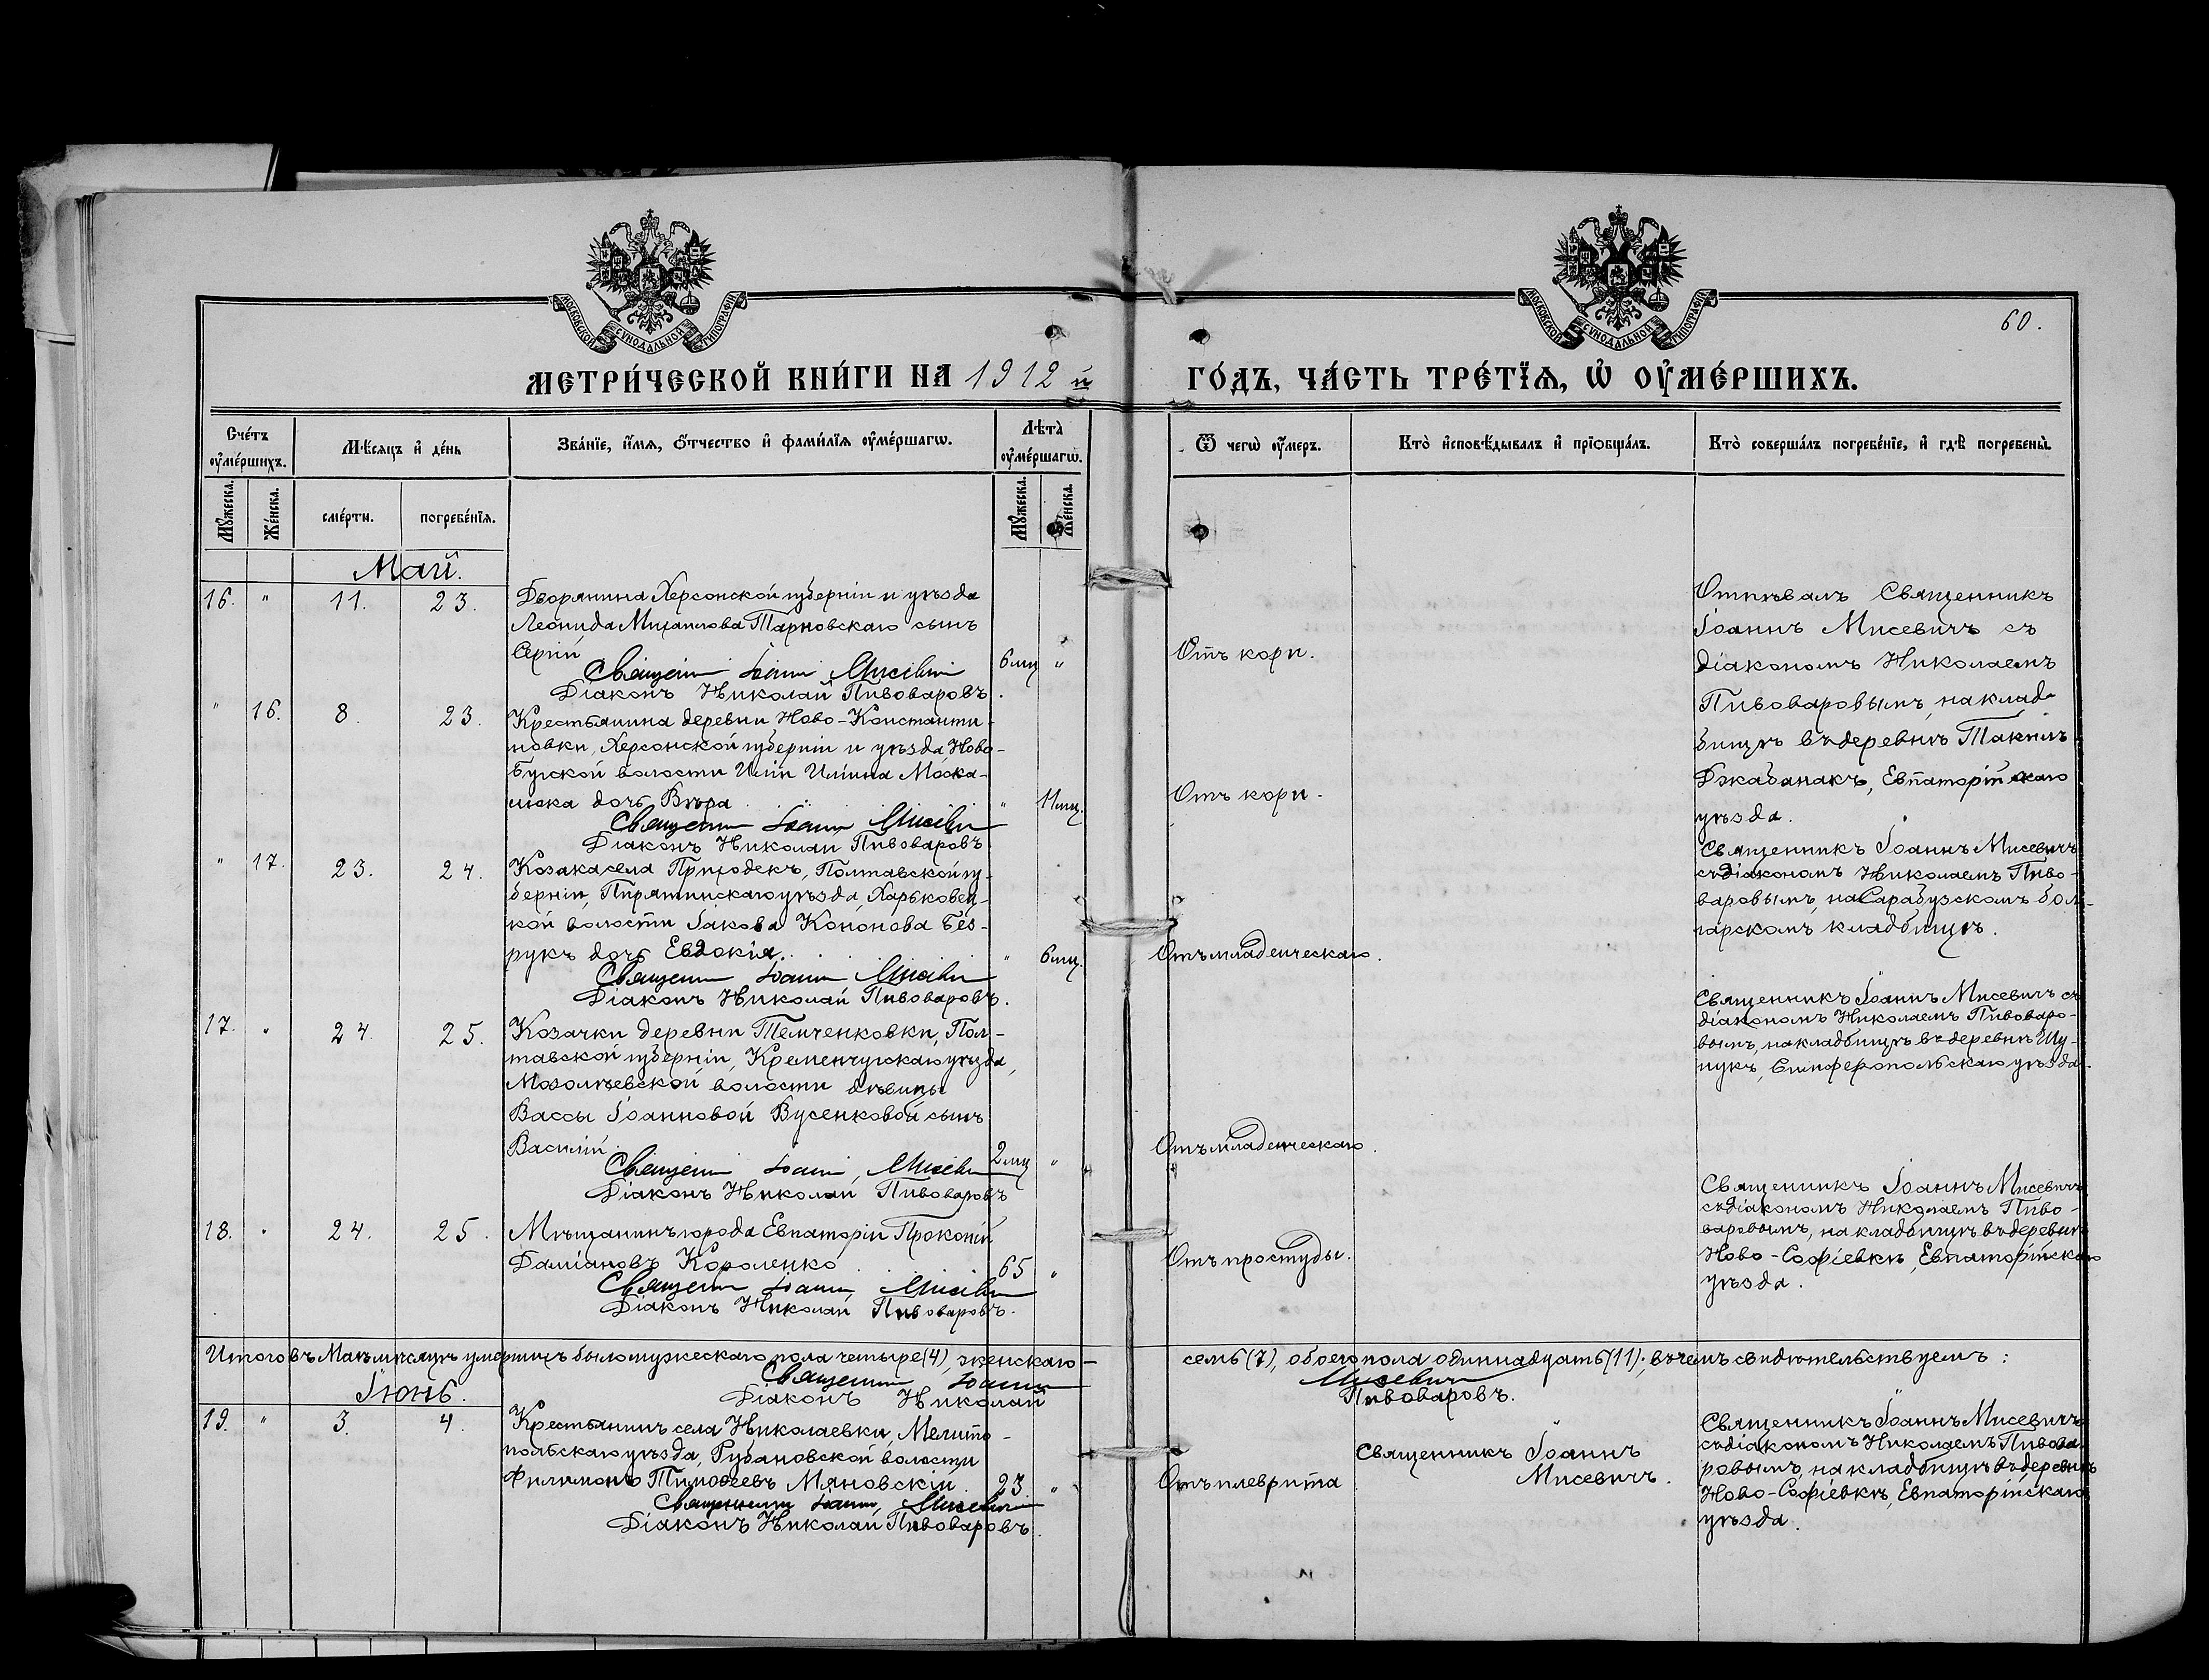 МОСКОВСКОЙ СѴНОДАЛЬНОЙ ТИПОГРАФІИ
МОСКОВСКОЙ СѴНОДАЛЬНОЙ ТИПОГРАФІИ
60.
МЕТРИ́ЧЕСКОЙ КНИ́ГИ НА 1912 й ГО́ДЪ, ЧА́СТЬ ТРЕ́ТЇѦ, Ѡ҆ ОУ҆МЕ́РШИХЪ.
Сче́тъ оу҆ме́ршихъ.
Мѣ́сяцъ и҆ де́нь
Зва́нїе, и҆́мя, ѻ҆́тчество и҆ фами́лїя оу҆ме́ршагѡ.
Лѣ́та оу҆ме́ршагѡ.
Ѿ чегѡ̀ оу҆́меръ.
Кто̀ и҆сповѣ́дывалъ и҆ прїѡбща́лъ.
Кто̀ соверша́лъ погребе́нїе, и҆ гдѣ̀ погребены̀.
Мꙋ́жеска.
Же́нска.
сме́рти.
погребе́нїя.
Мꙋ́жеска.
Же́нска.
Май.
16. " 11. 23.
Дворянина Херсонской губерніи и уѣзда
Леонида Михаилова Тарновскаго сынъ
Сергій
6 мц "
Отъ кори.
Священникъ Іоаннъ Мисевичъ
Діаконъ Николай Пивоваровъ.
Отпѣвалъ Священникъ
Іоаннъ Мисевичъ съ
діакономъ Николаемъ
Пивоваровымъ, на клад-
бищѣ въ деревнѣ Такилъ
Джабанакъ, Евпаторійскаго
уѣзда.
" 16. 8. 23.
Крестьянина деревни Ново-Константи-
новки, Херсонской губерніи и уѣзда Ново-
Бугской волости Иліи Иліина Моска-
люка дочь Вѣра
" 11 мц.
Отъ кори.
Священникъ Іоаннъ Мисевичъ
Діаконъ Николай Пивоваровъ.
" 17. 23. 24.
Козака села Приходекъ, Полтавской гу-
берніи, Пирятинскаго уѣзда, Харьковец-
кой волости Іакова Кононова Без-
рукъ дочь Евдокія.
" 6 мц.
Отъ младенческаго.
Священникъ Іоаннъ Мисевичъ
Діаконъ Николай Пивоваровъ.
Священникъ Іоаннъ Мисевичъ
съ діакономъ Николаемъ Пиво-
варовымъ, на Сарабузскомъ бол-
гарскомъ кладбищѣ.
17. " 24. 25.
Козачки деревни Темченковки, Пол-
тавской губерніи, Кременчугскаго уѣзда,
волости дѣвицы
Вассы Іоанновой Вусенковой сынъ
Василій
2 мц "
Отъ младенческаго.
Священникъ Іоаннъ Мисевичъ
Діаконъ Николай Пивоваровъ
Священникъ Іоаннъ Мисевичъ съ
діакономъ Николаемъ Пивоваро-
вымъ, на кладбищѣ въ деревнѣ Шу-
нукъ, Симферопольскаго уѣзда.
18. " 24. 25.
Мѣщанинъ города Евпаторіи Прокопій
Даміановъ Короленко
65 "
Отъ простуды.
Священникъ Іоаннъ Мисевичъ
Діаконъ Николай Пивоваровъ.
Священникъ Іоаннъ Мисевичъ
съ діакономъ Николаемъ Пиво-
варовымъ, на кладбищѣ въ деревнѣ
Ново-Софіевкѣ, Евпаторійскаго
уѣзда.
Итого въ Маѣ мѣсяцѣ умершихъ было мужескаго пола четыре (4), женскаго — семь (7), обоего пола одиннадцать (11); въ чемъ свидѣтельствуемъ:
Священникъ Іоаннъ Мисевичъ
Діаконъ Николай Пивоваровъ.
Іюнь.
19. " 3. 4.
Крестьянинъ села Николаевки, Мелито-
польскаго уѣзда, Рубановской волости
Филимонъ Тимоѳеевъ Мяновскій.
23 "
Отъ плеврита
Священникъ Іоаннъ
Мисевичъ.
Священникъ Іоаннъ Мисевичъ
Діаконъ Николай Пивоваровъ.
Священникъ Іоаннъ Мисевичъ
съ діакономъ Николаемъ Пивова-
ровымъ, на кладбищѣ въ деревнѣ
Ново-Софіевкѣ, Евпаторійскаго
уѣзда.